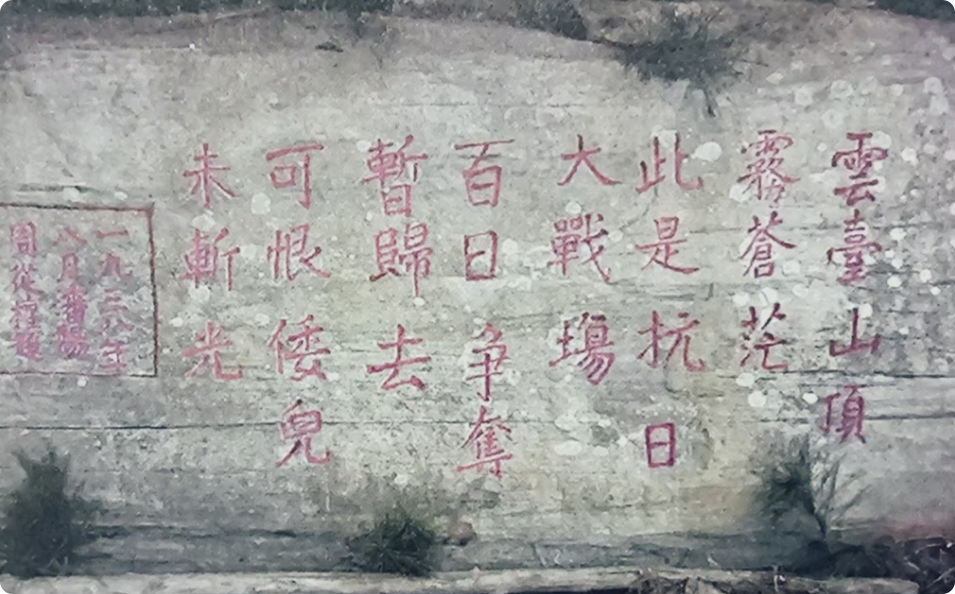 雲臺山頂
霧蒼茫
此是抗日
大戰塲
百日争奪
暫歸去
可恨倭兒
未斬光
一九三八年
八月
周從
題